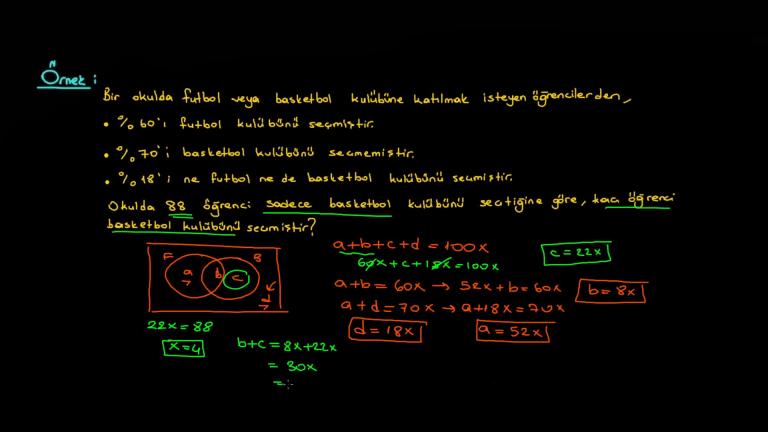 Örnek :
Bir okulda futbol veya basketbol kulübüne katılmak isteyen öğrencilerden,
• % 60'ı futbol kulübünü seçmiştir.
• % 70'i basketbol kulübünü seçmemiştir.
• % 18'i ne futbol ne de basketbol kulübünü seçmiştir.
Okulda 88 öğrenci sadece basketbol kulübünü seçtiğine göre, kaç öğrenci
basketbol kulübünü seçmiştir?
F B
a b c
d
22x = 88
x = 4
a+b+c+d = 100x
60x + c + 18x = 100x
c = 22x
a+b = 60x → 52x + b = 60x
b = 8x
a+d = 70x → a+18x = 70x
d = 18x
a = 52x
b+c = 8x+22x
= 30x
=